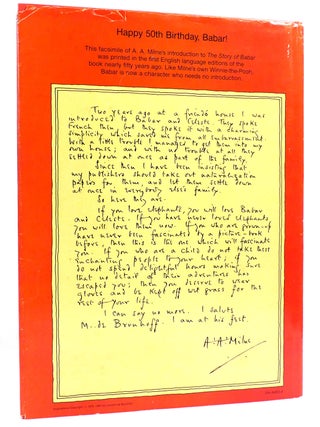 Happy 50th Birthday, Babar!
This facsimile of A. A. Milne's introduction to The Story of Babar
was printed in the first English language editions of the
book nearly fifty years ago. Like Milne's own Winnie-the-Pooh,
Babar is now a character who needs no introduction.
Two years ago at a friend's house I was
introduced to Babar and Celeste. They spoke
French then but they spoke it with a charming
simplicity which saved me from all embarrassment.
With a little trouble I managed to get them into my
own house; and with no trouble at all they
settled down at once as part of the family.
Since then I have been insisting that
my publishers should take out naturalization
papers for them, and let them settle down
at once in everybody else's family.
So here they are.
If you love elephants, you will love Babar
and Celeste. If you have never loved elephants,
you will love them now. If you who are grown-up
have never been fascinated by a picture-book
before, then this is the one which will fascinate
you. If you who are a child do not take these
enchanting people to your heart; if you
do not spend delightful hours making sure
that no detail of their adventures has
escaped you; then you deserve to wear
gloves and be kept off wet grass for the
rest of your life.
I can say no more. I salute
M. de Brunhoff. I am at his feet.
A. A. Milne